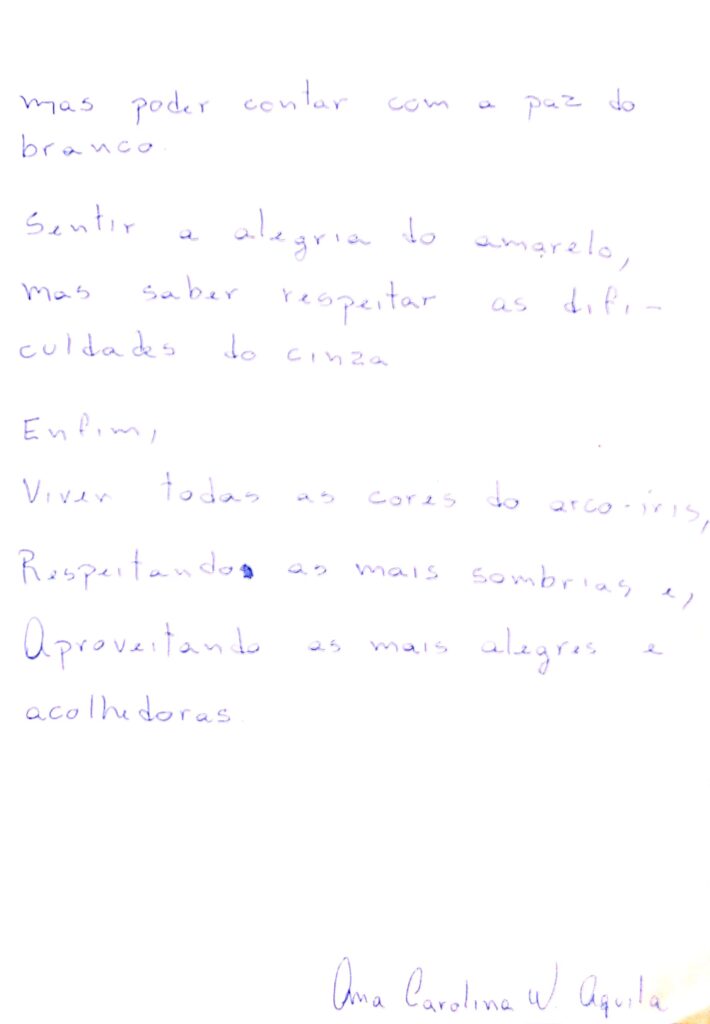 mas poder contar com a paz do
branco.
Sentir a alegria do amarelo,
mas saber respeitar as difi-
culdades do cinza
Enfim,
Viver todas as cores do arco-íris,
Respeitando as mais sombrias e,
Aproveitando as mais alegres e
acolhedoras.
Ana Carolina W. Aquila